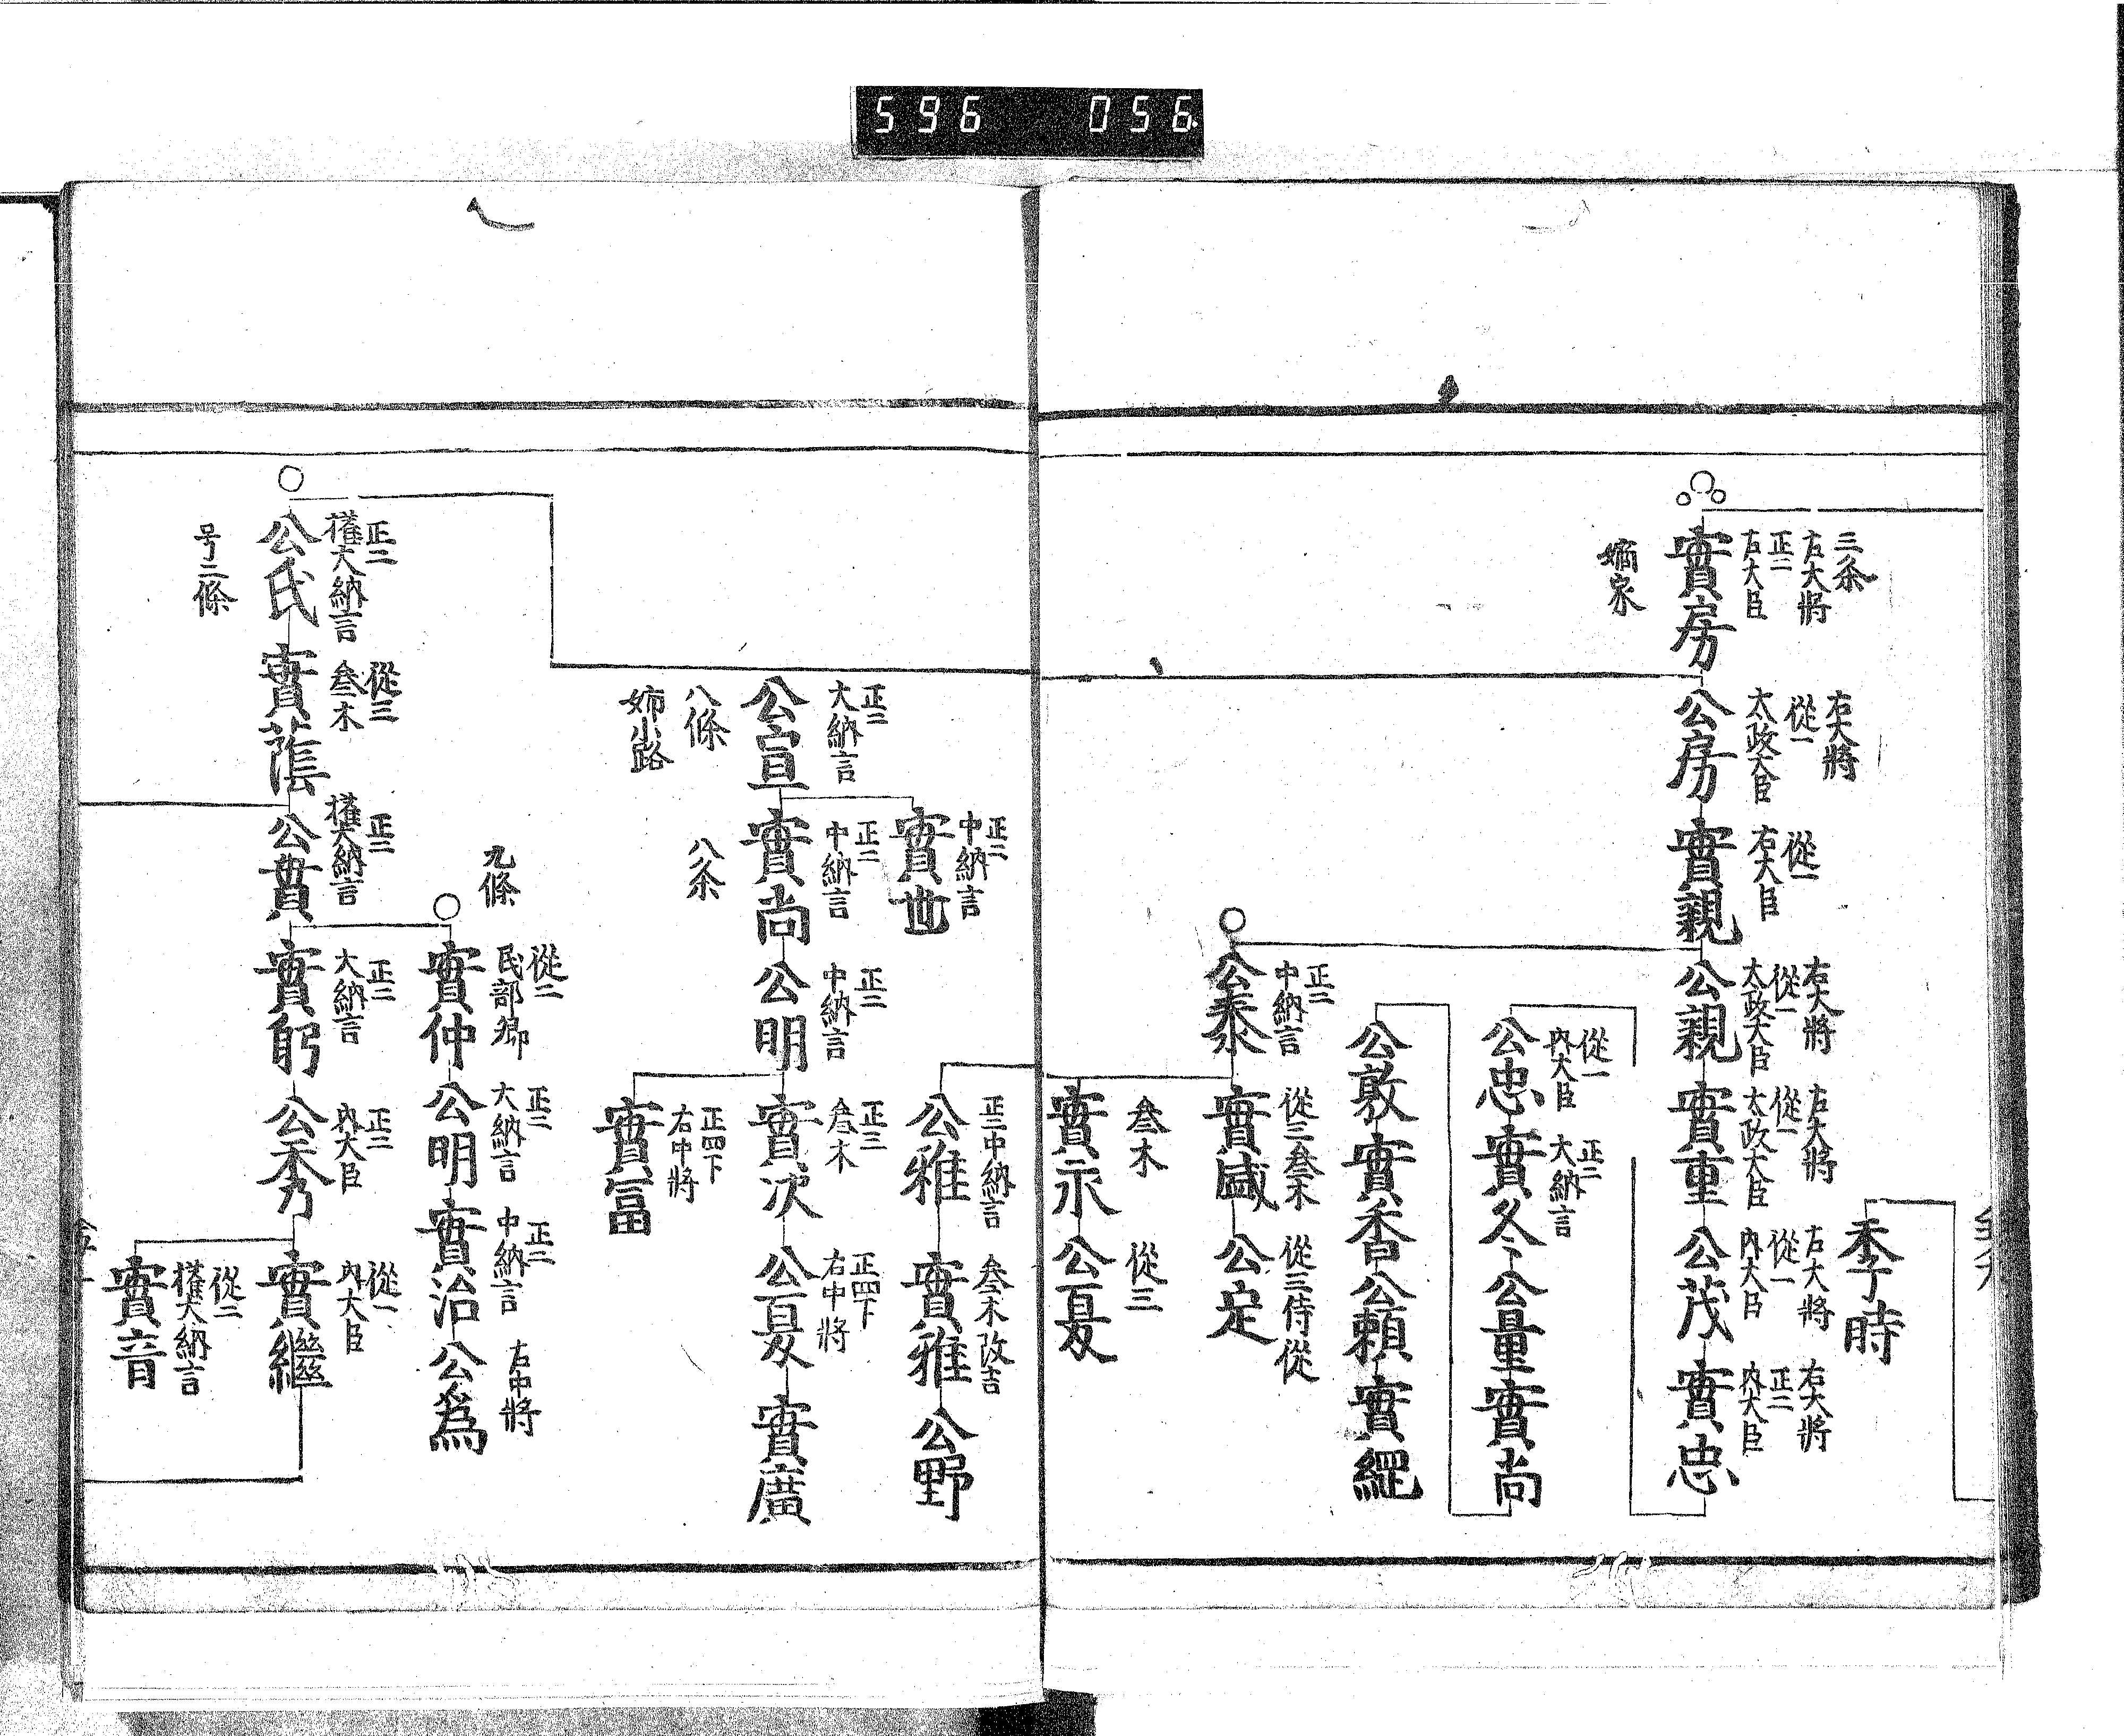 596 056
季時
三条
右大將
正二
右大臣
實房
嫡家
右大將
從一
太政大臣
公房
從一
右大臣
實親
右大將
從一
太政大臣
公親
右大將
從一
太政大臣
實重
右大將
從一
內大臣
公茂
右大將
正二
內大臣
實忠
從一
內大臣
公忠
正二
大納言
實冬
公量
實尚
公敦
實香
公頼
實綱
正二
中納言
公泰
從三叅木
實盛
從三侍從
公定
叅木
實永
從三
公夏
正二中納言
公雅
叅木改吉
實雅
公野
正二
大納言
公宣
八條
姉小路
正二
中納言
實世
正二
中納言
實尚
八条
正二
中納言
公明
正三
叅木
實次
正四下
右中將
公夏
實廣
正四下
右中將
實冨
九條
從二
民部卿
實仲
正二
大納言
公明
正二
中納言
實治
右中將
公爲
正二
權大納言
公氏
号二條
從三
叅木
實蔭
正二
權大納言
公貫
正二
大納言
實躬
正二
內大臣
公秀
從一
內大臣
實繼
從二
權大納言
實音